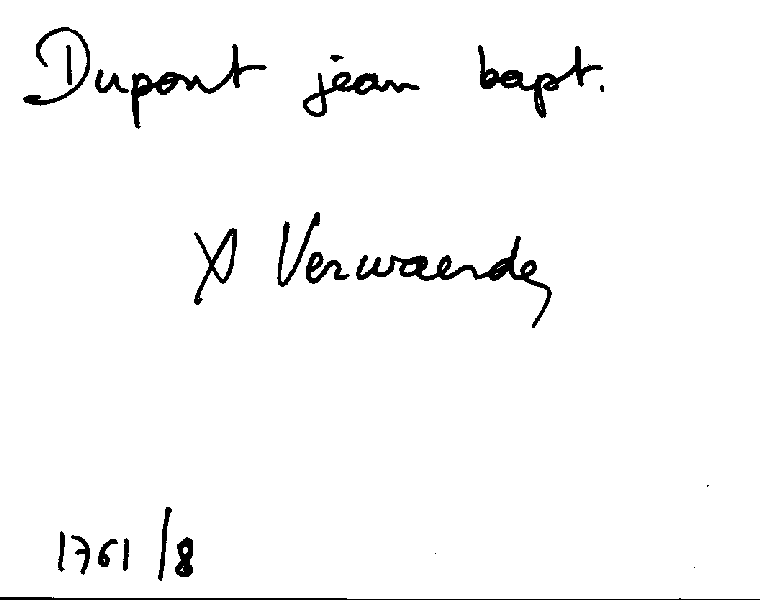 Dupont jean bapt.
X Verwaerde
1761/8